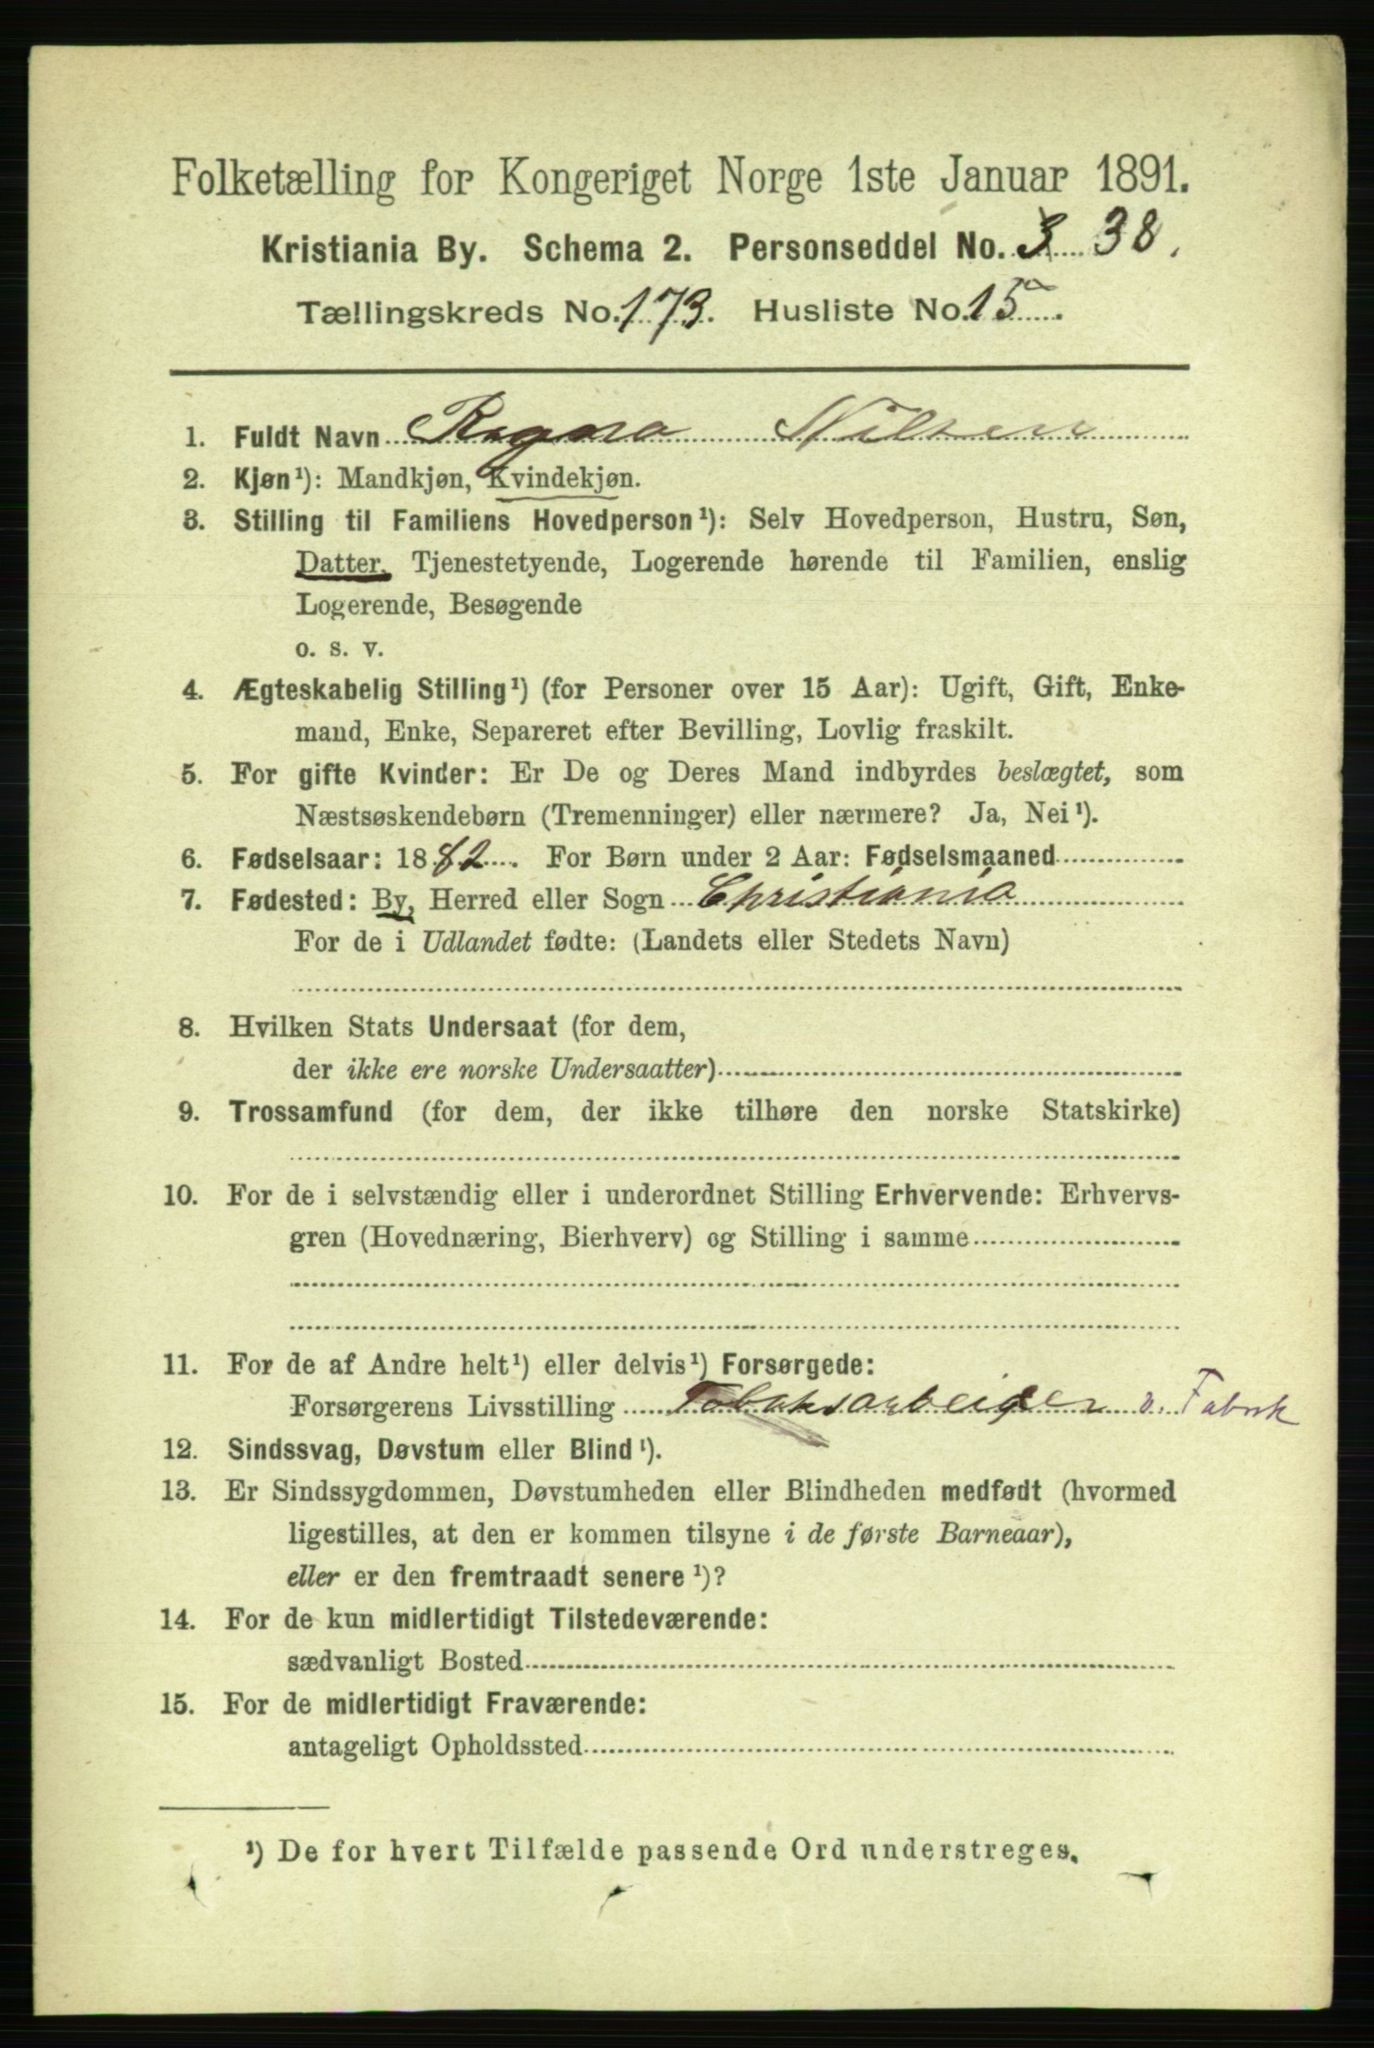 Folketælling for Kongeriget Norge 1ste Januar 1891.
Kristiania By. Schema 2. Personseddel No. 3 38.
Tællingskreds No. 173. Husliste No. 15
1. Fuldt Navn Ragna Nilsen
2. Kjøn¹): Mandkjøn, Kvindekjøn.
3. Stilling til Familiens Hovedperson¹): Selv Hovedperson, Hustru, Søn,
Datter, Tjenestetyende, Logerende hørende til Familien, enslig
Logerende, Besøgende
o. s. v.
4. Ægteskabelig Stilling¹) (for Personer over 15 Aar): Ugift, Gift, Enke-
mand, Enke, Separeret efter Bevilling, Lovlig fraskilt.
5. For gifte Kvinder: Er De og Deres Mand indbyrdes beslægtet, som
Næstsøskendebørn (Tremenninger) eller nærmere? Ja, Nei¹).
6. Fødselsaar: 1882. For Børn under 2 Aar: Fødselsmaaned
7. Fødested: By, Herred eller Sogn Christiania
For de i Udlandet fødte: (Landets eller Stedets Navn)
8. Hvilken Stats Undersaat (for dem,
der ikke ere norske Undersaatter)
9. Trossamfund (for dem, der ikke tilhøre den norske Statskirke)
10. For de i selvstændig eller i underordnet Stilling Erhvervende: Erhvervs-
gren (Hovednæring, Bierhverv) og Stilling i samme
11. For de af Andre helt¹) eller delvis¹) Forsørgede:
Forsørgerens Livsstilling Tobaksarbeider v. Fabrik
12. Sindssvag, Døvstum eller Blind¹).
13. Er Sindssygdommen, Døvstumheden eller Blindheden medfødt (hvormed
ligestilles, at den er kommen tilsyne i de første Barneaar),
eller er den fremtraadt senere¹)?
14. For de kun midlertidigt Tilstedeværende:
sædvanligt Bosted
15. For de midlertidigt Fraværende:
antageligt Opholdssted
¹) De for hvert Tilfælde passende Ord understreges.